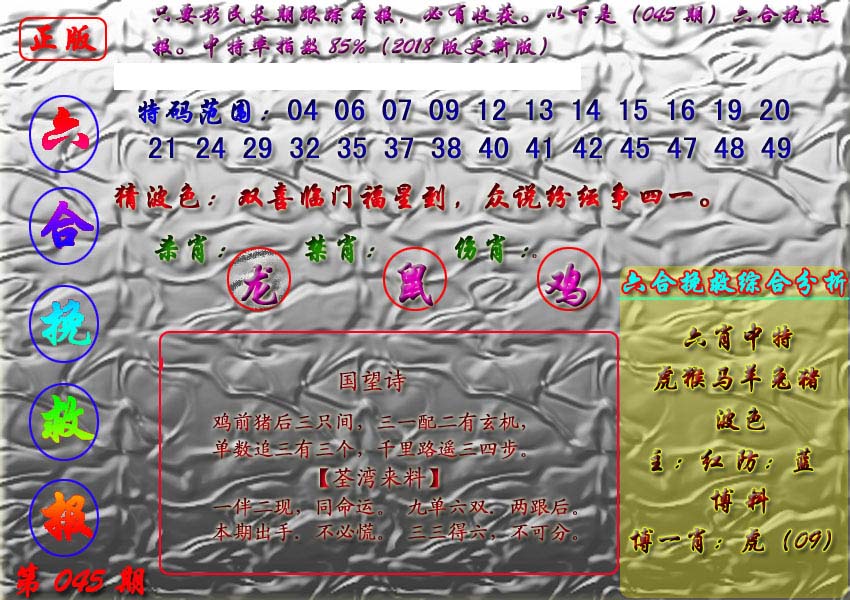 正版
只要彩民长期跟踪本报，必有收获。以下是（045期）六合挽救
报。中特率指数85%（2018版更新版）
六
合
挽
救
报
第045期
特码范围：04 06 07 09 12 13 14 15 16 19 20
21 24 29 32 35 37 38 40 41 42 45 47 48 49
猜波色：双喜临门福星到，众说纷纭争四一。
杀肖：龙 禁肖：鼠 伤肖：鸡
国望诗
鸡前猪后三只间，三一配二有玄机，
单数追三有三个，千里路遥二四步。
【荃湾来料】
一伴二现，同命运。 九单六双．两跟后。
本期出手．不必慌。 三三得六，不可分。
六合挽救综合分析
六肖中特
虎猴马羊兔猪
波色
主：红防：蓝
博料
博一肖：虎（09）